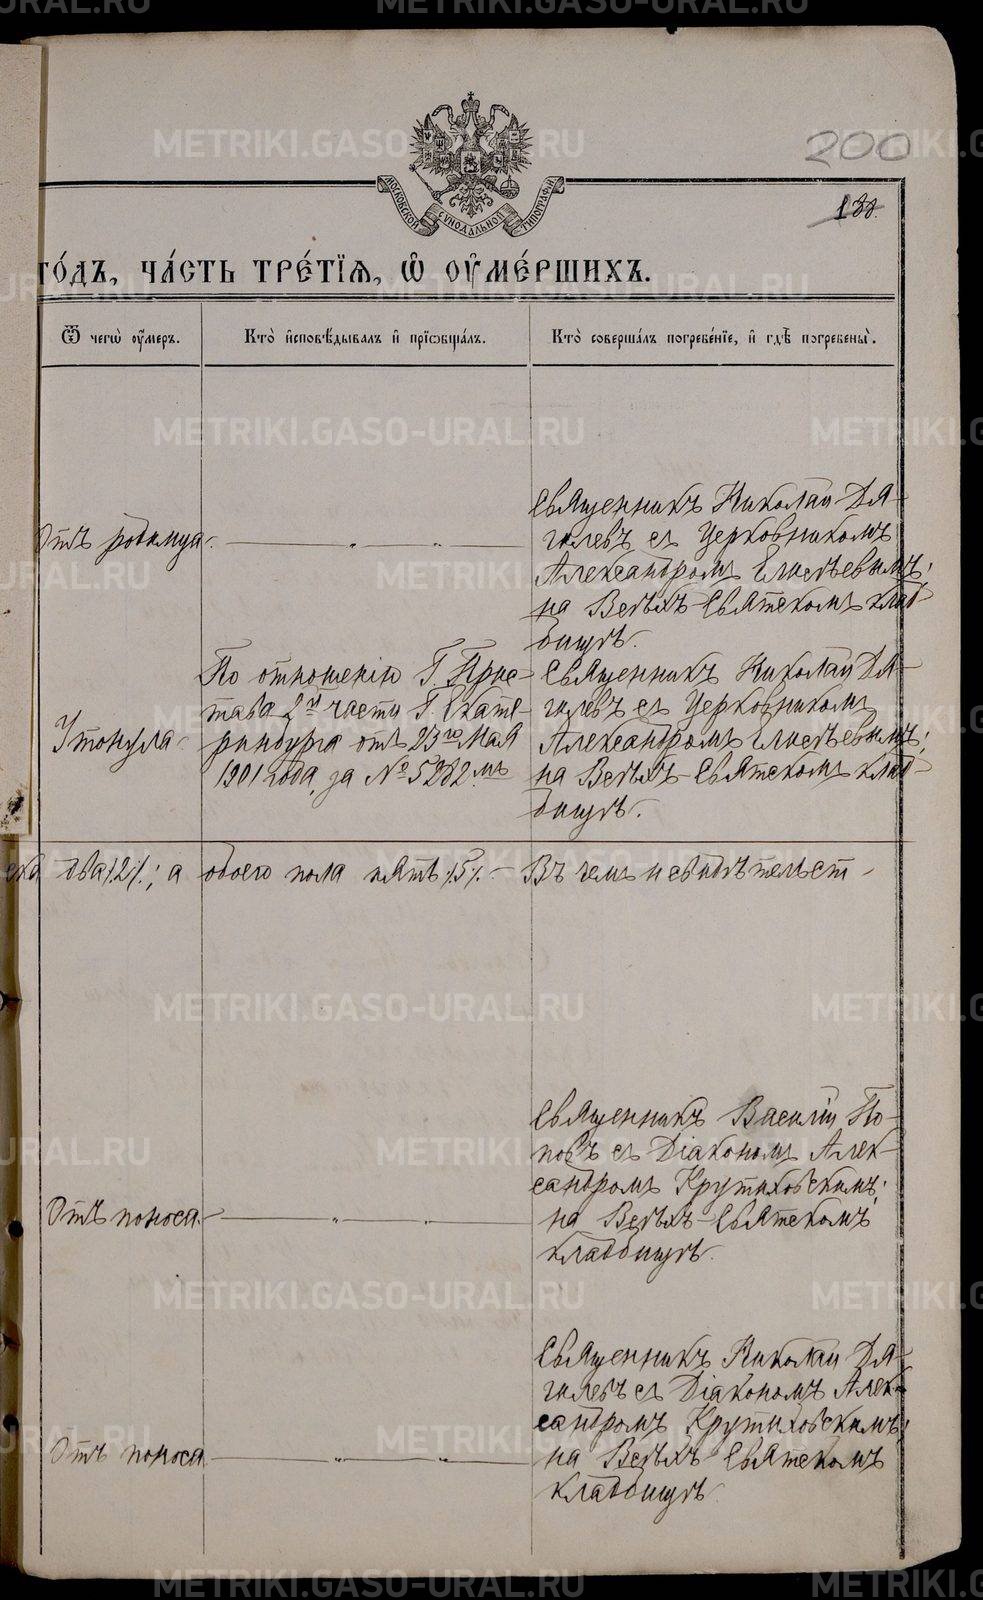 200
188.
МОСКОВСКОЙ СѴНОДАЛЬНОЙ ТИПОГРАФІИ
ГО́ДЪ, ЧА́СТЬ ТРЕ́ТІѦ, Ѡ҆ ОУ҆МЕ́РШИХЪ.
Ѿ чегѡ̀ оу҆́меръ.
Кто̀ и҆сповѣ́дывалъ и҆ прїѡбща́лъ.
Кто̀ соверша́лъ погребе́нїе, и҆ гдѣ̀ погребены̀.
Отъ родимца.
Священникъ Николай Дя-
гилевъ съ Церковникомъ
Александромъ Елисѣевымъ;
на Всѣхъ-Святскомъ клад-
бищѣ.
Утонула.
По отношенію Г. Прис-
тава 2й части Г. Екате-
ринбурга отъ 23го Мая
1901 года, за № 5282.мъ
Священникъ Николай Дя-
гилевъ съ Церковникомъ
Александромъ Елисѣевымъ;
на Всѣхъ-Святскомъ клад-
бищѣ.
два /2/.; а обоего пола пять /5/. – Въ чемъ и свидѣтельст-
Отъ поноса.
Священникъ Василій По-
повъ съ Діакономъ Алек-
сандромъ Крутиховскимъ;
на Всѣхъ-Святскомъ
кладбищѣ.
Отъ поноса.
Священникъ Николай Дя-
гилевъ съ Діакономъ Алек-
сандромъ Крутиховскимъ;
на Всѣхъ Святскомъ
кладбищѣ.
METRIKI.GASO-URAL.RU